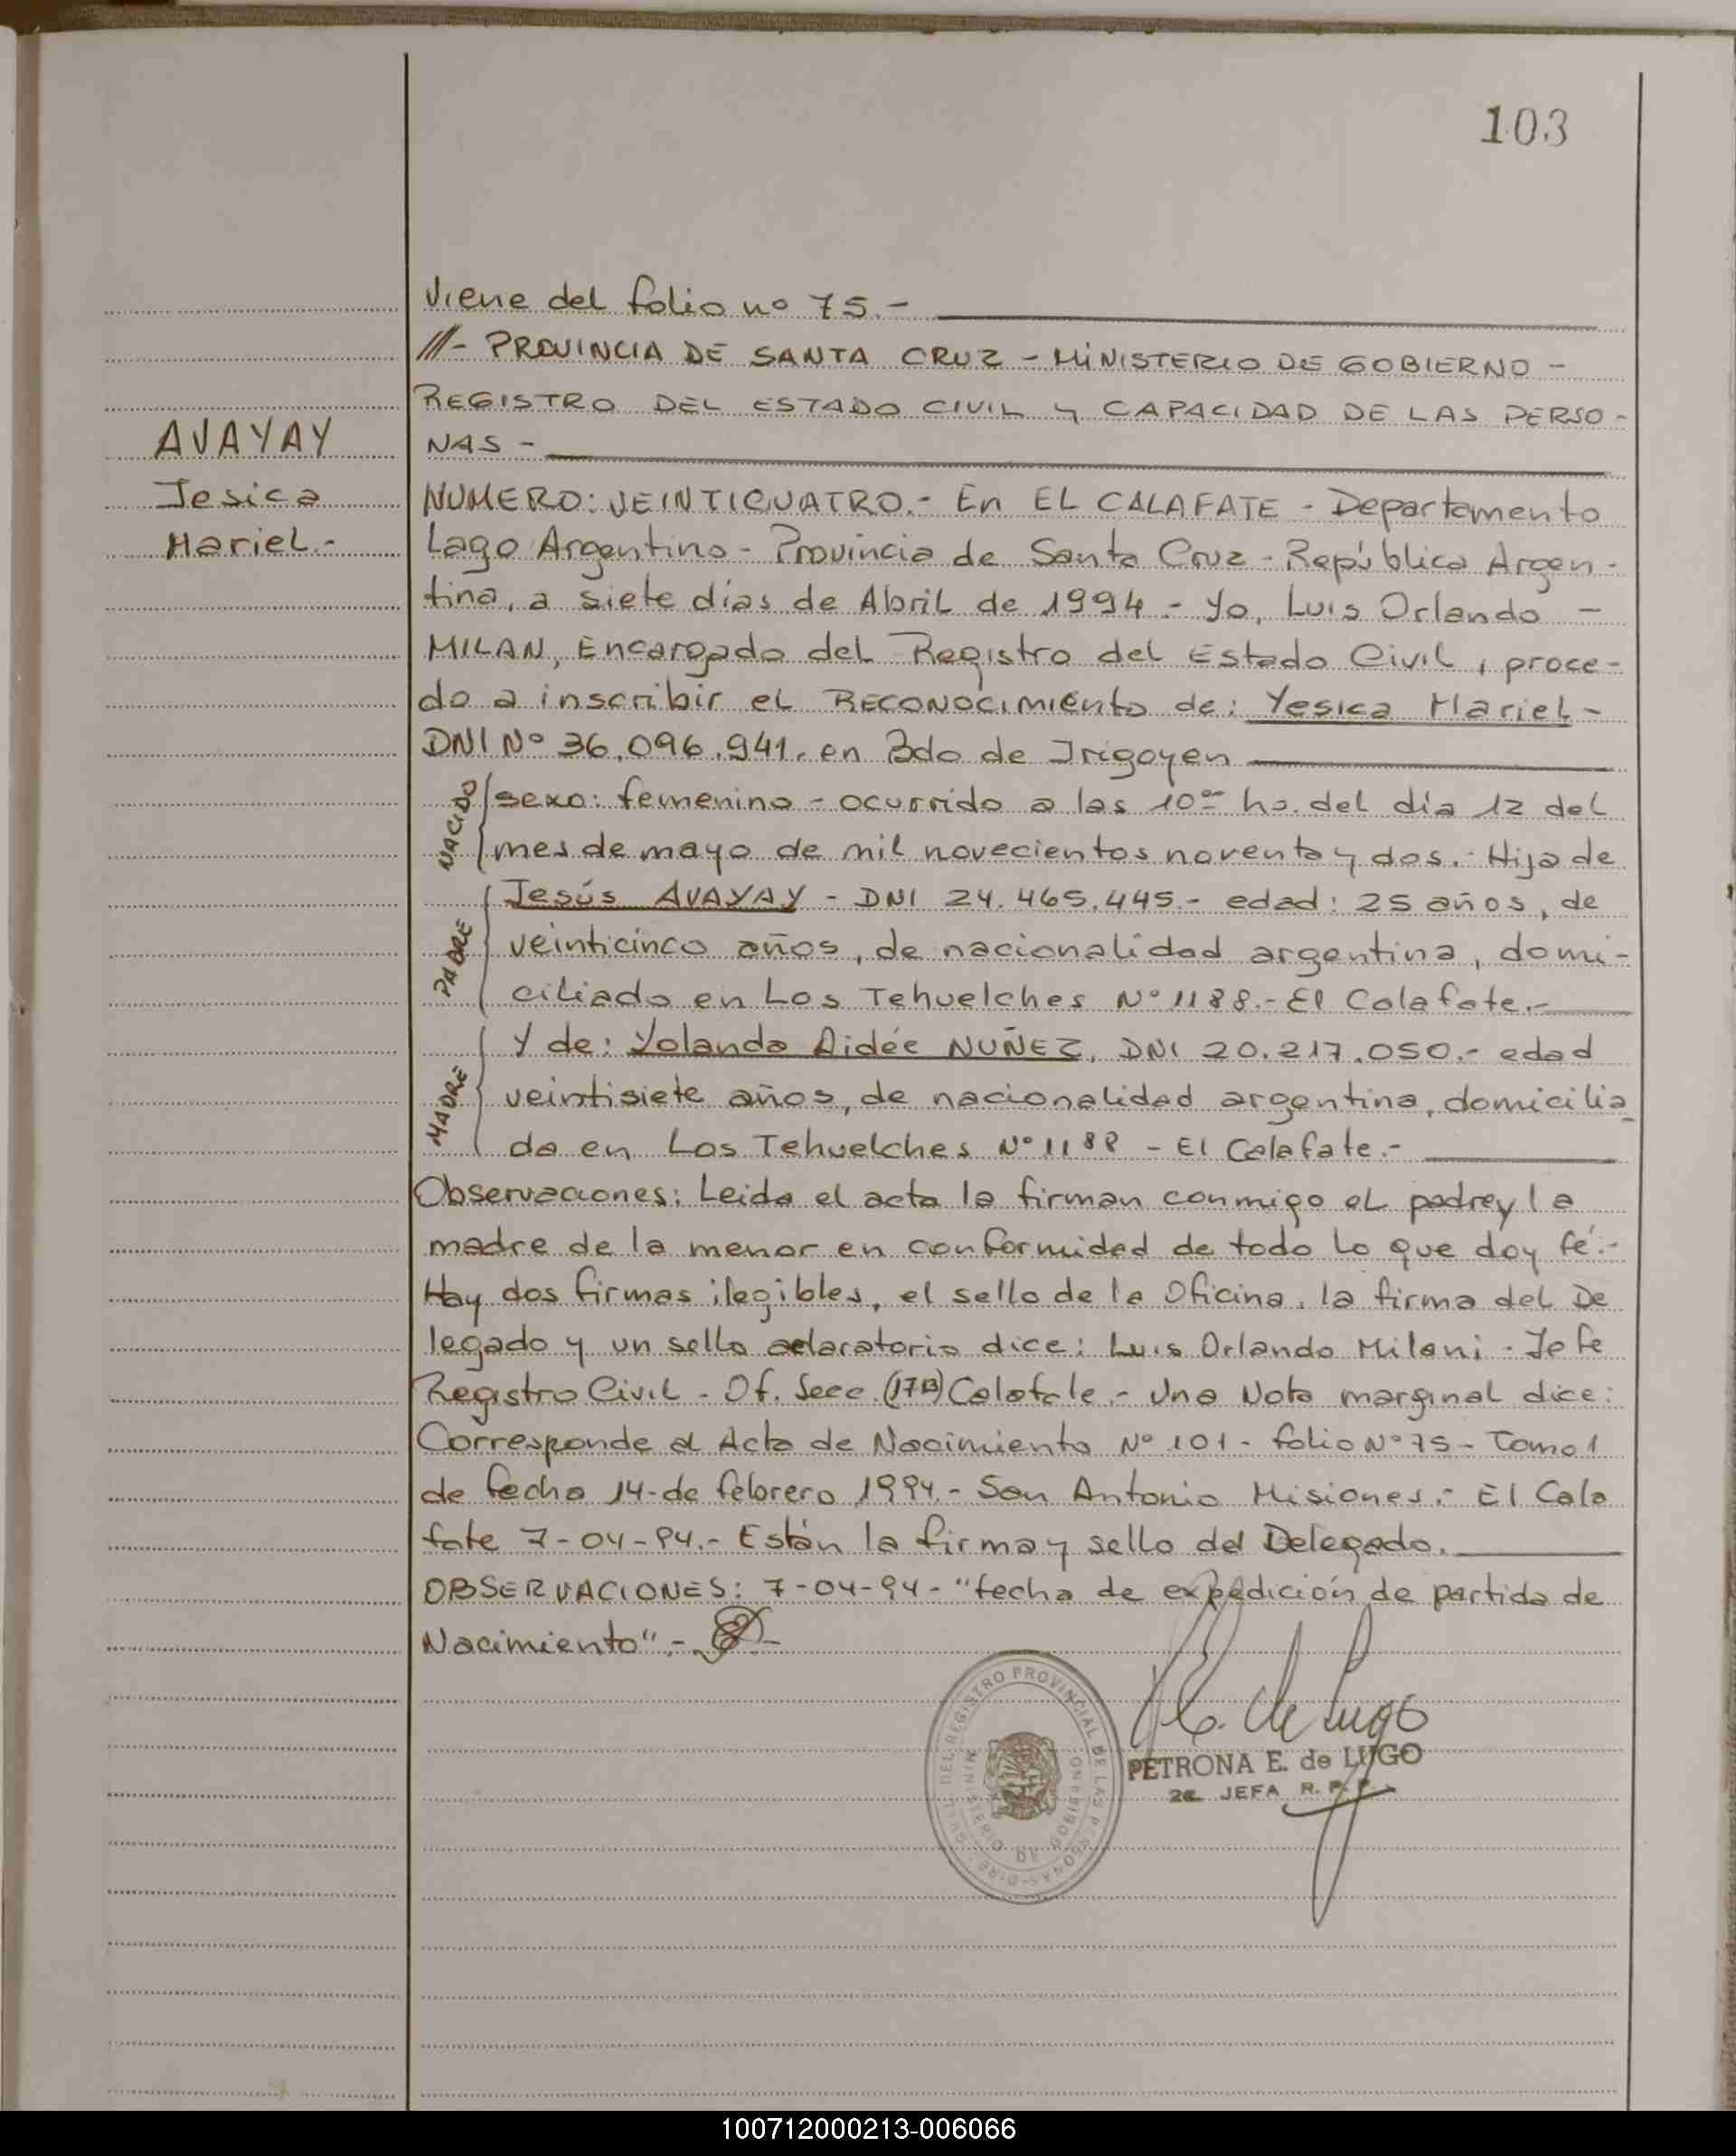 103
Viene del folio nº 75.-
///- PROVINCIA DE SANTA CRUZ - MINISTERIO DE GOBIERNO -
REGISTRO DEL ESTADO CIVIL y CAPACIDAD DE LAS PERSO-
NAS -
AVAYAY
Jesica
Mariel.-
NUMERO: VEINTICUATRO.- En EL CALAFATE - Departamento
Lago Argentino - Provincia de Santa Cruz - República Argen-
tina, a siete días de Abril de 1994 - Yo, Luis Orlando -
MILAN, Encargado del Registro del Estado Civil, proce-
do a inscribir el RECONOCIMIENTO de: Yesica Mariel -
DNI Nº 36.096.941. en Bdo de Irigoyen
NACIDO
sexo: femenino - ocurrido a las 10 hs. del día 12 del
mes de mayo de mil novecientos noventa y dos.- Hija de
PADRE
Jesús AVAYAY - DNI 24.465.445.- edad: 25 años, de
veinticinco años, de nacionalidad argentina, domi-
ciliado en Los Tehuelches Nº 1188.- El Calafate.-
MADRE
Y de: Yolanda Aidée NUÑEZ, DNI 20.217.050.- edad
veintisiete años, de nacionalidad argentina, domicilia
da en Los Tehuelches Nº 1188 - El Calafate.-
Observaciones: Leida el acta la firman conmigo el padre y la
madre de la menor en conformidad de todo lo que doy fé.-
Hay dos firmas ilegibles, el sello de la Oficina, la firma del De
legado y un sello aclaratorio dice: Luis Orlando Milani - Jefe
Registro Civil - Of. Secc. (17B) Calafate.- Una Nota marginal dice:
Corresponde al Acta de Nacimiento Nº 101 - folio Nº 75 - Tomo 1
de fecha 14 de febrero 1994.- San Antonio Misiones.- El Cala
fate 7-04-94.- Están la firma y sello del Delegado.
OBSERVACIONES: 7-04-94 - "fecha de expedición de partida de
Nacimiento".-
de Lugo
PETRONA E. de LUGO
2a. JEFA R. P. P.
DEL REGISTRO PROVINCIAL DE LAS PERSONAS
MINISTERIO DE GOBIERNO
100712000213-006066